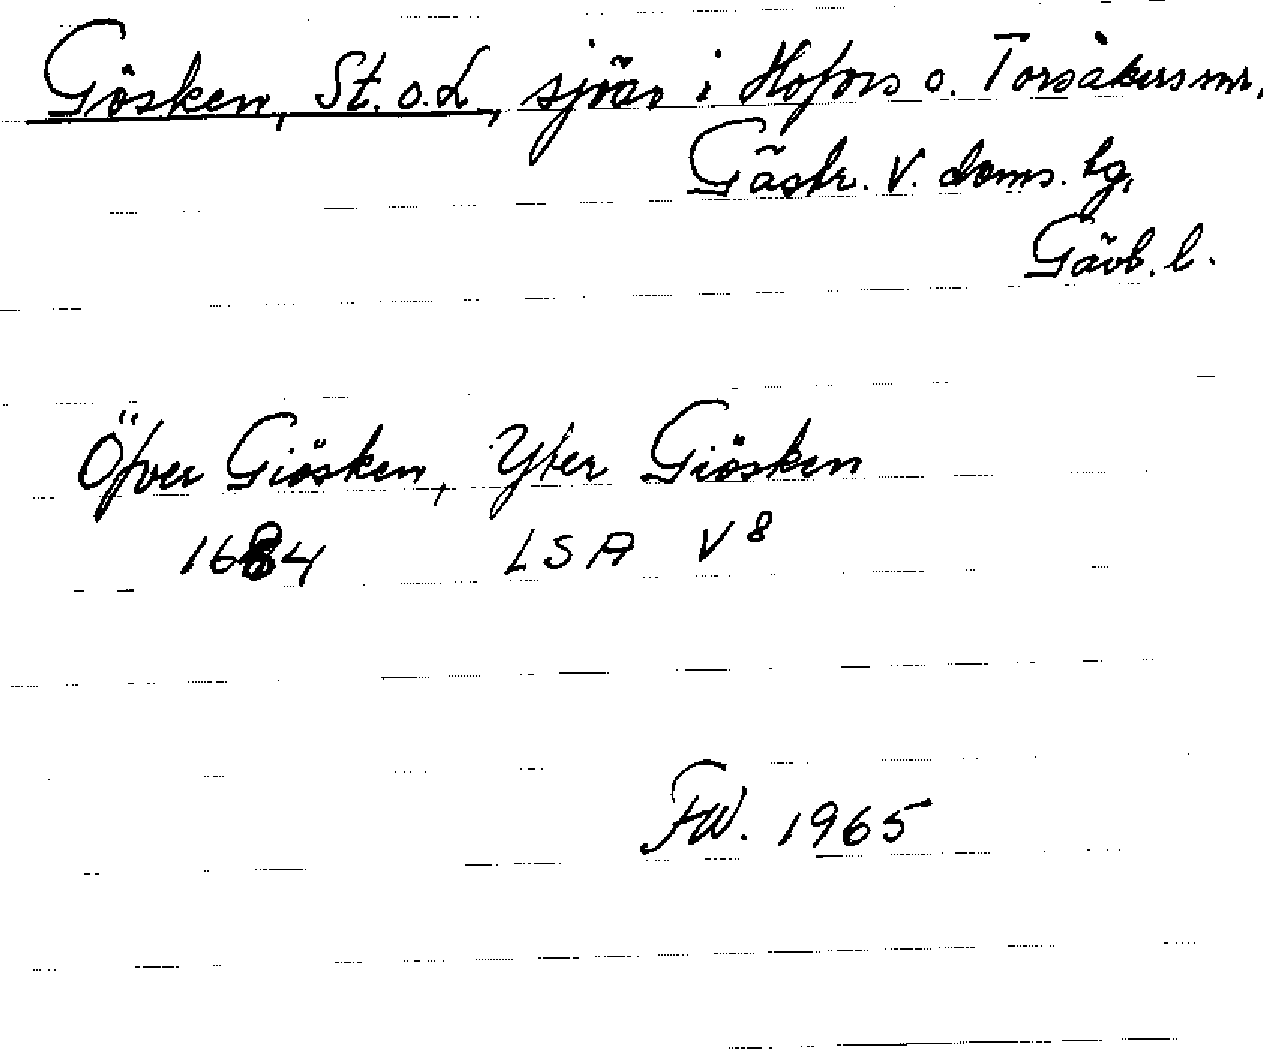 Gösken, St. o. L, sjöar i Hofors o. Torsåkers snr,
Gästr. V. doms. tg,
Gävb. l.
Öfver Giösken, Yter Giösken
1684 LSA V8
FW. 1965